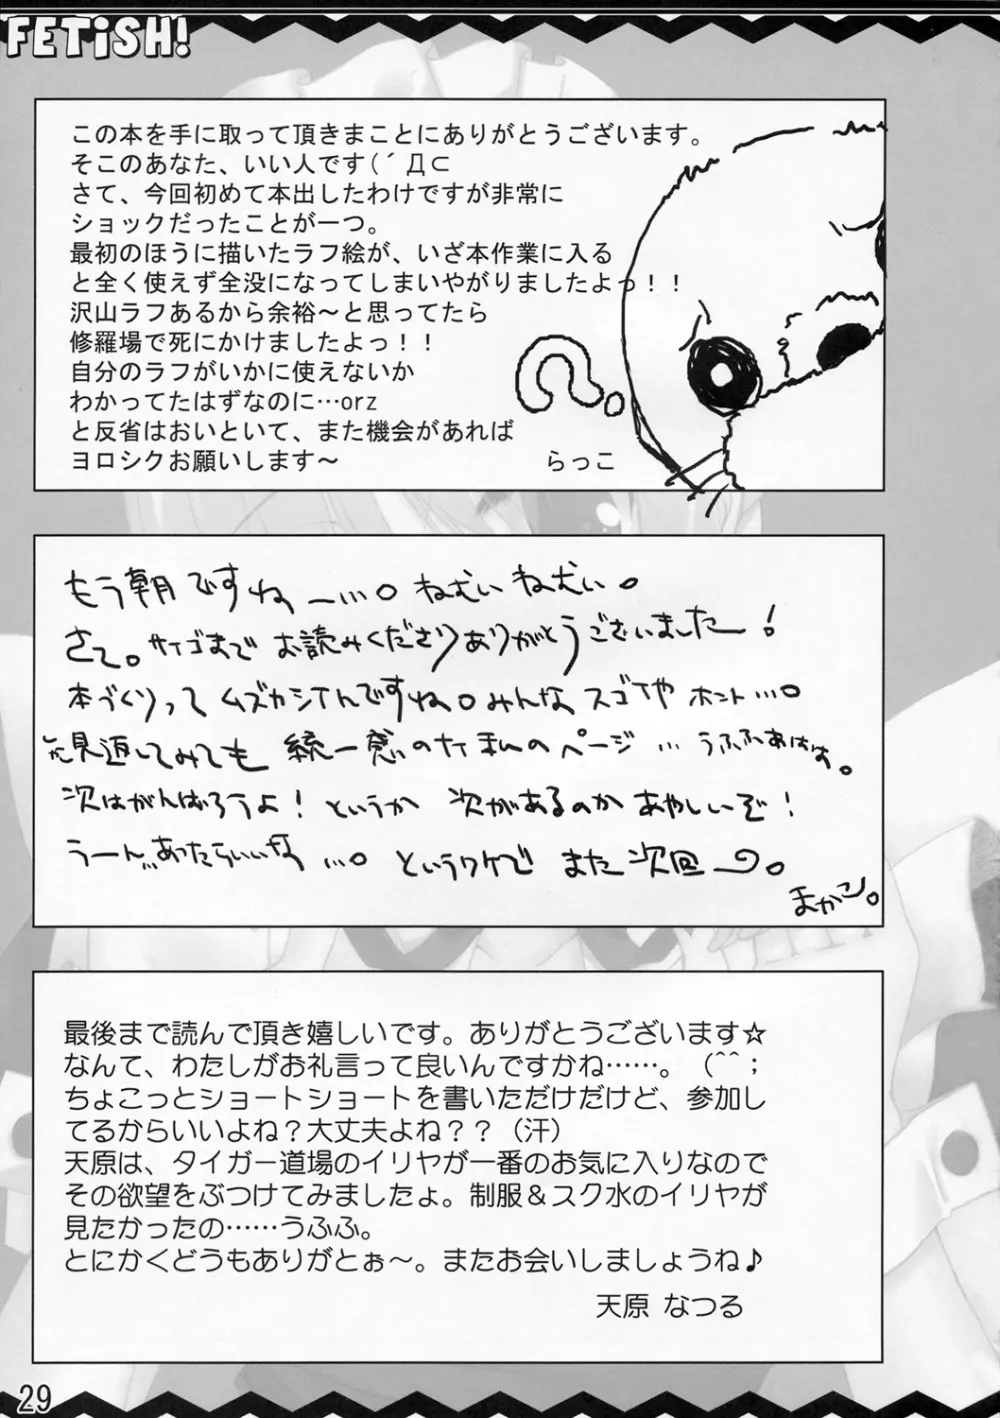 FETiSH!
この本を手に取って頂きまことにありがとうございます。
そこのあなた、いい人です(´Д⊂
さて、今回初めて本出したわけですが非常に
ショックだったことが一つ。
最初のほうに描いたラフ絵が、いざ本作業に入る
と全く使えず全没になってしまいやがりましたよっ！！
沢山ラフあるから余裕～と思ってたら
修羅場で死にかけましたよっ！！
自分のラフがいかに使えないか
わかってたはずなのに…orz
と反省はおいといて、また機会があれば
ヨロシクお願いします～　らっこ
もう朝ですねー…。ねむい ねむい。
さて。サイゴまで お読みくださりありがとうございましたー！
本づくりって ムズカシイんですね。みんな スゴイや ホント…。
見返してみても 統一感のナイ まんのページ … うふふあはは。
次はがんばろうよ！ というか 次があるのか あやしいぞ！
うーん、あったらいいな …。 というワケで また次回。
まかこ。
最後まで読んで頂き嬉しいです。ありがとうございます☆
なんて、わたしがお礼言って良いんですかね……。（^^；
ちょこっとショートショートを書いただけだけど、参加し
てるからいいよね？大丈夫よね？？（汗）
天原は、タイガー道場のイリヤが一番のお気に入りなので
その欲望をぶつけてみましたょ。制服＆スク水のイリヤが
見たかったの……うふふ。
とにかくどうもありがとぉ～。またお会いしましょうね♪
天原 なつる
29